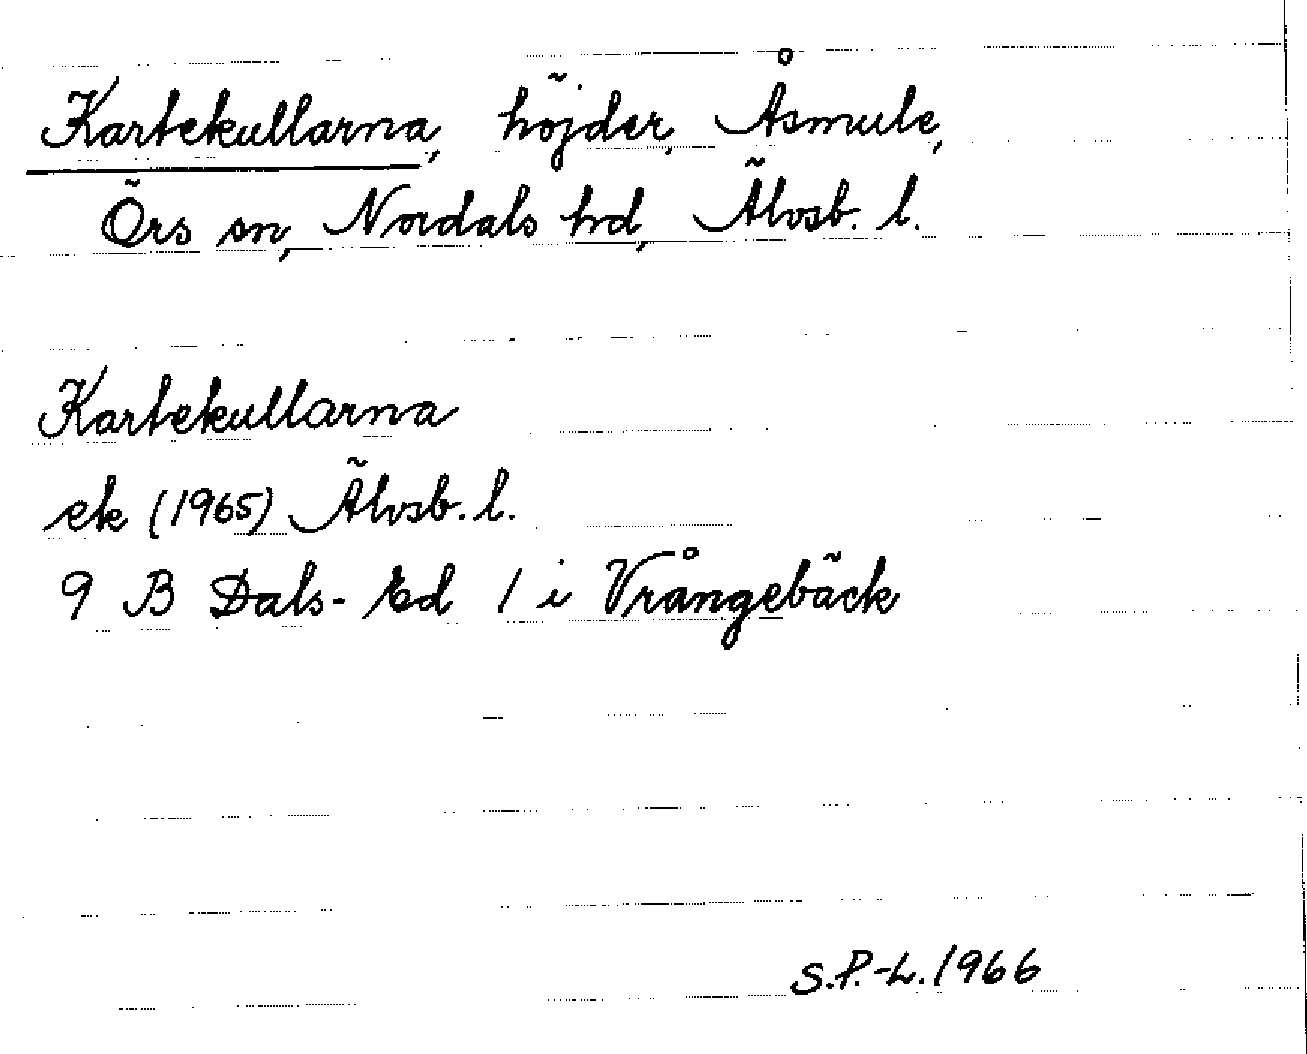 Kartekullarna, höjder, Åsmule,
Örs sn, Nordals hd, Älvsb. l.
Kartekullarna
ek (1965) Älvsb. l.
9 B Dals-Ed 1 i Vrångebäck
S.P.-L. 1966